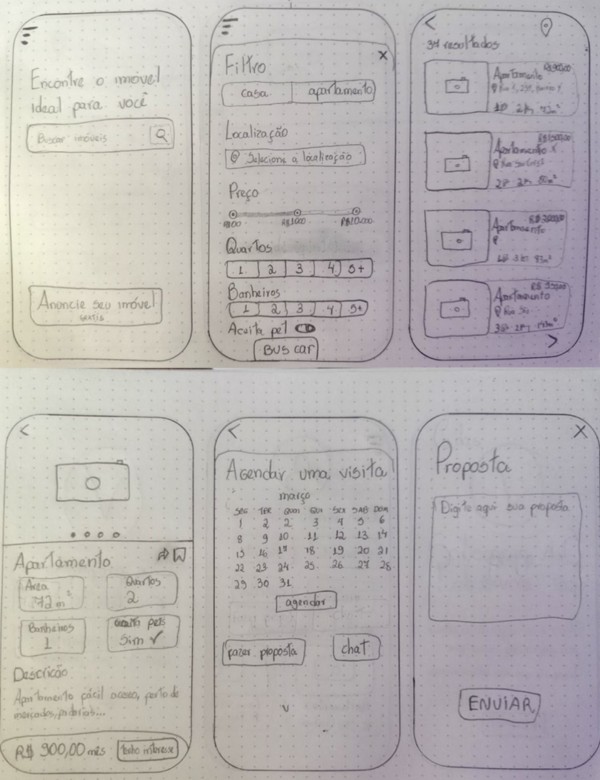 Encontre o imóvel
ideal para você
Buscar imóveis
Anuncie seu imóvel
GRÁTIS
X
Filtro
casa apartamento
Localização
Selecione a localização
Preço
R$1000 R$10.000
Quartos
1 2 3 4 5+
Banheiros
1 2 3 4 5+
Aceita pet
BUSCAR
<
resultados
Apartamento
Apartamento
Apartamento
Apartamento
>
<
Apartamento
Área
72m²
Quartos
2
Banheiros
1
aceita pets
Sim ✓
Descrição
Apartamento fácil acesso, perto de
mercados, padarias...
R$ 900,00 mês
<
Agendar uma visita
março
SEG TER QUA QUI SEX SAB DOM
1 2 2 3 4 5 6
8 9 10 11 12 13 14
15 16 17 18 19 20 21
22 23 24 25 26 27 28
29 30 31
agendar
fazer proposta chat
X
Proposta
Digite aqui sua proposta
ENVIAR